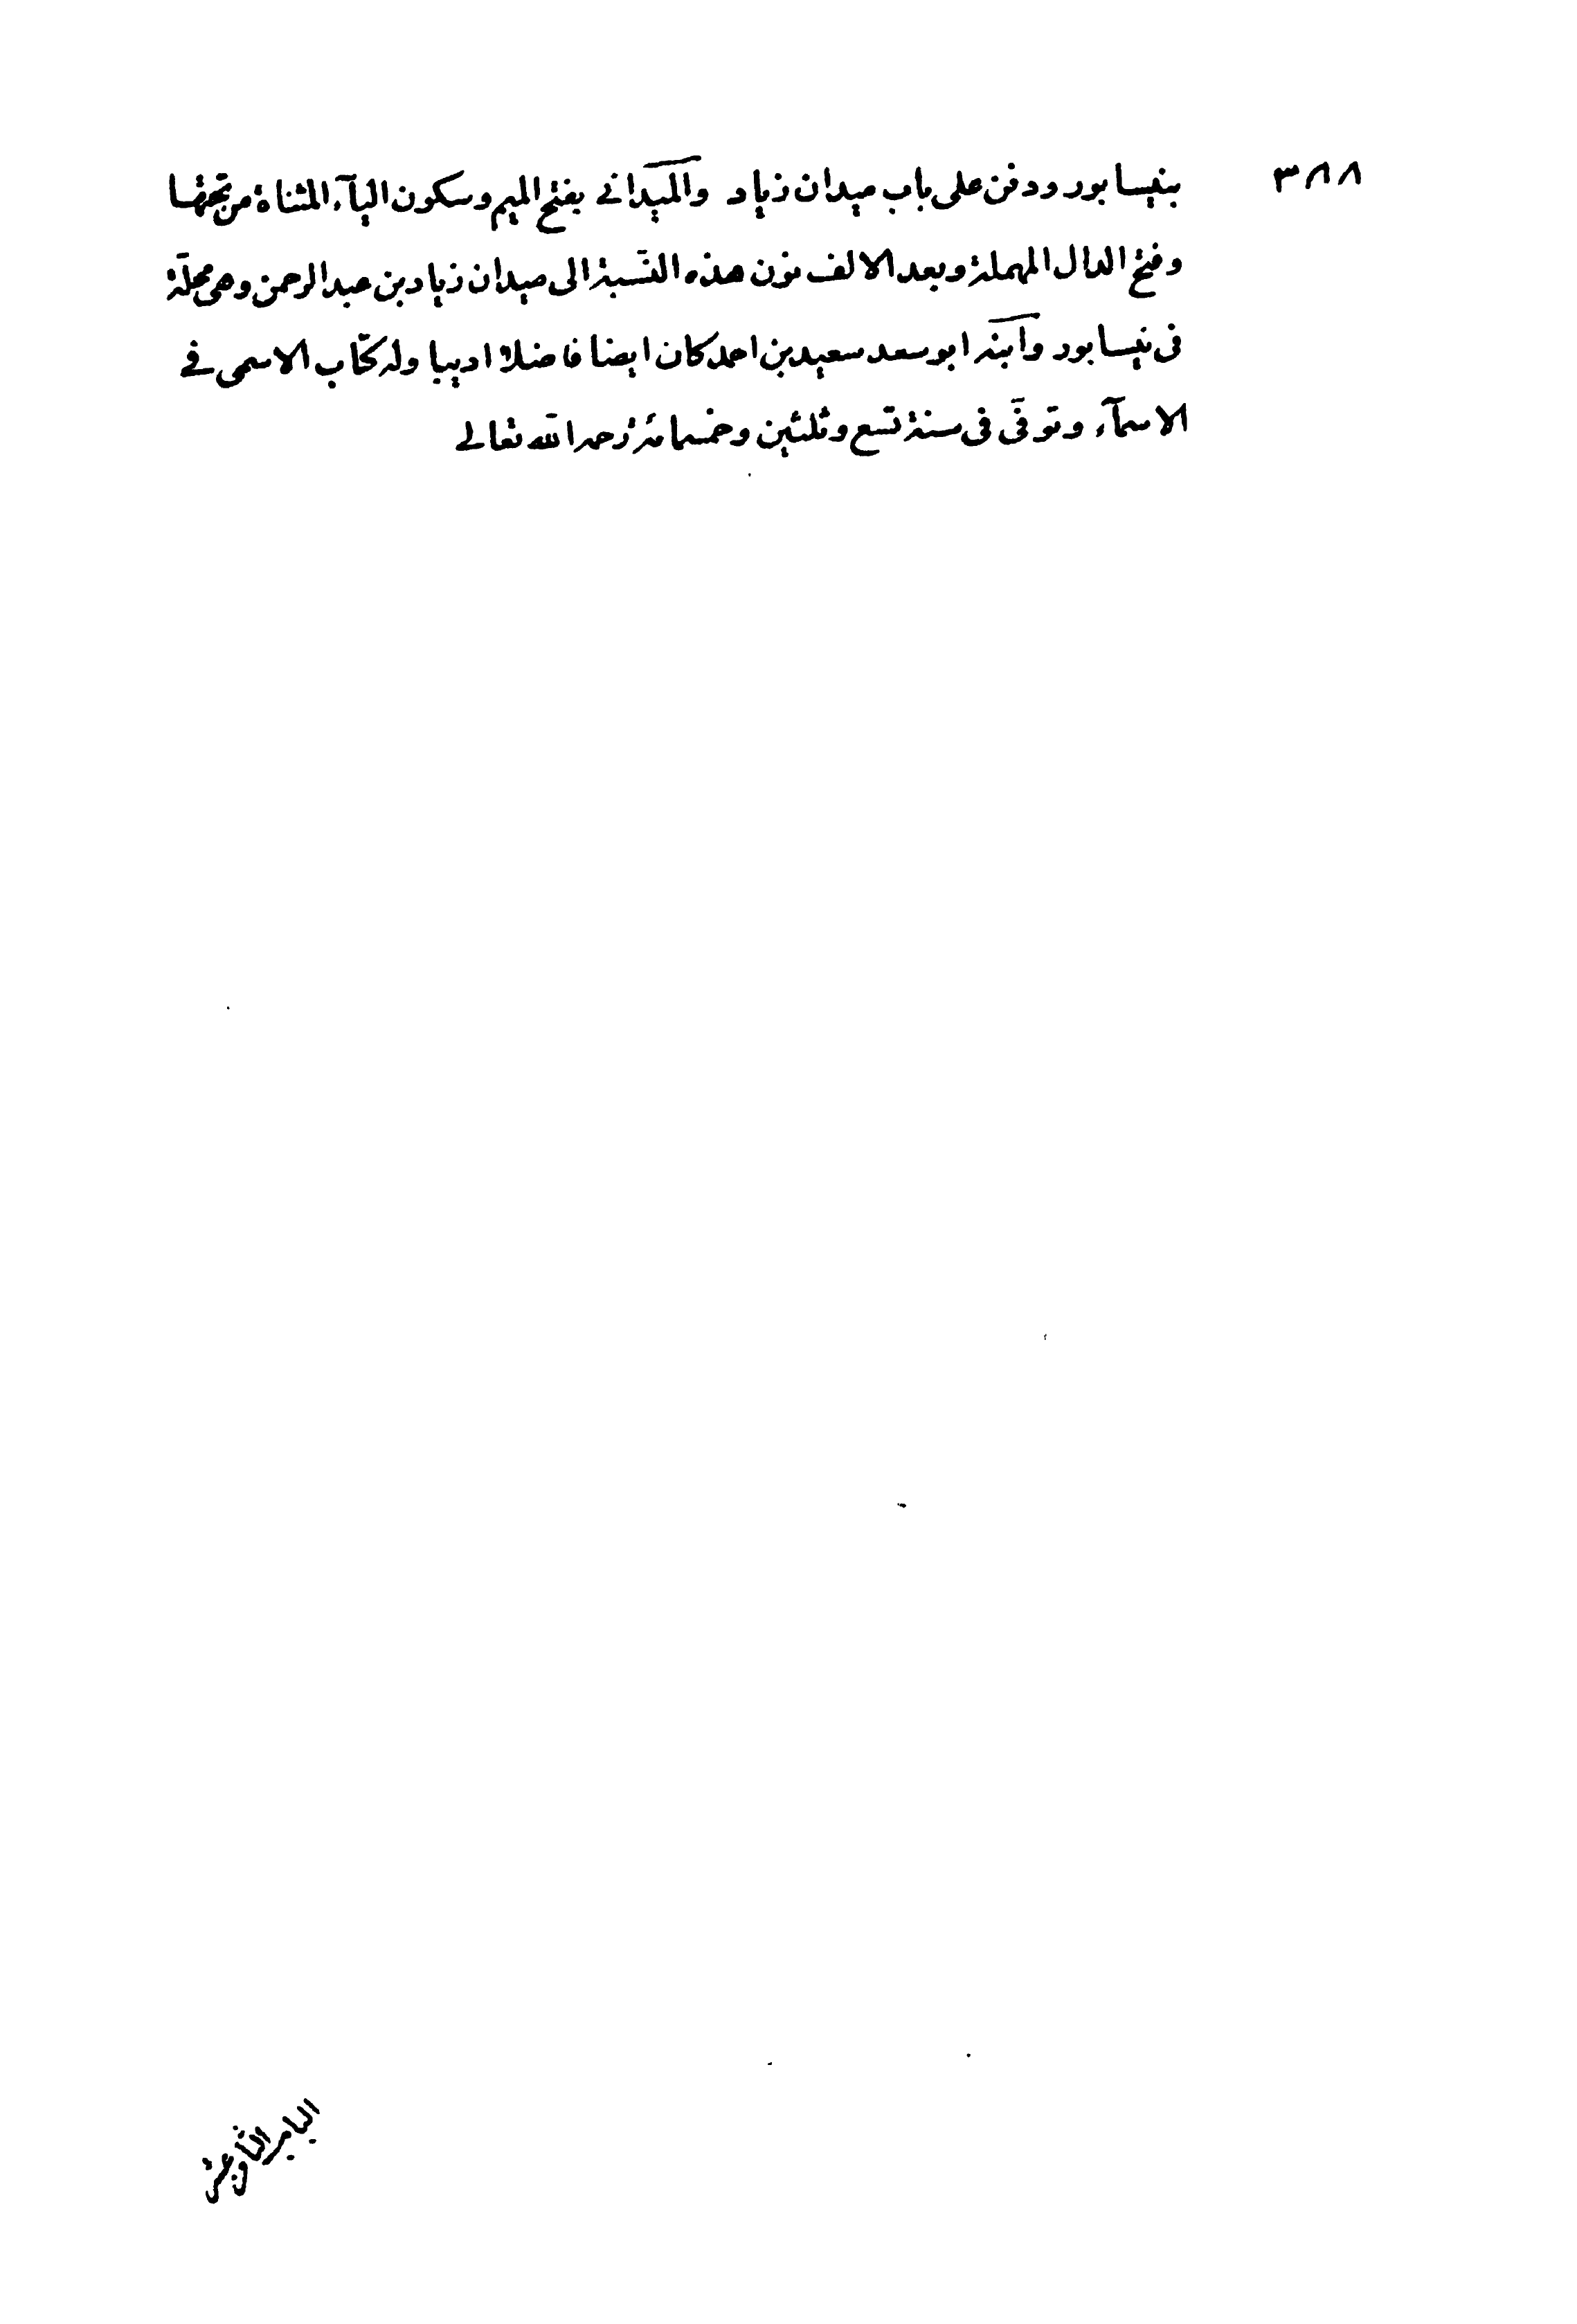 ٣٨٨
بنيسابور ودفن على باب ميدان زياد والميدانے بفتح الميم وسكون اليآء المثناة من تحتها
وفتح الدال المهملة وبعد الالف نون هذه النسبة الى ميدان زياد بن عبد الرحمن وهى محلّة
فى نيسابور وابنه ابو سعد سعيد بن احمد كان ايضا فاضلا اديبا وله كتاب الاسمى فے
الاسمآء وتوفّى فى سنة تسع وثلثين وخمسمائة رحمه الله تعالے
الباب الثانى عشر